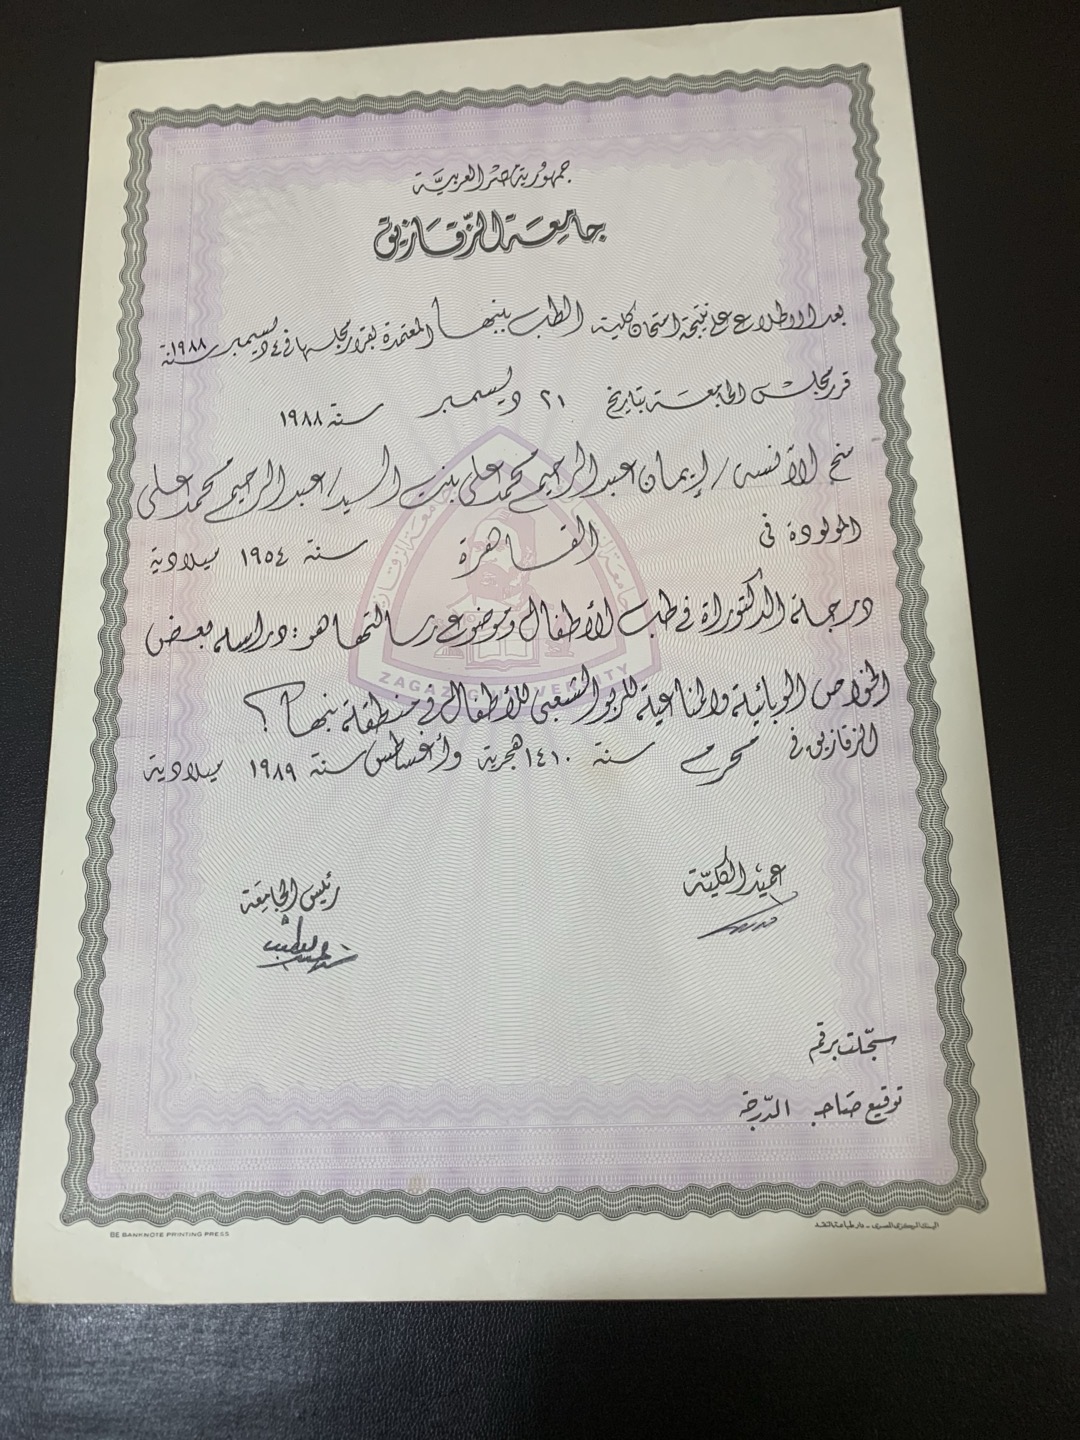 جمهورية مصر العربية
جامعة الزقازيق
بعد الاطلاع على نتيجة امتحان كلية الطب ببنها المعتمدة بقرار مجلسها في ٤ ديسمبر سنة ١٩٨٨
قرر مجلس الجامعة بتاريخ ٢١ ديسمبر سنة ١٩٨٨
منح الآنسة / إيمان عبد الرحيم محمد على بنت السيد / عبد الرحيم محمد على
المولودة فى القاهرة سنة ١٩٥٤ ميلادية
درجة الدكتوراة في طب الأطفال وموضوع رسالتها هو : دراسة بعض
الخواص الوبائية والمناعية للربو الشعبى للأطفال في منطقة بنها
الزقازيق في محرم سنة ١٤١٠ هجرية وأغسطس سنة ١٩٨٩ ميلادية
ZAGAZIG UNIVERSITY
عميد الكلية
رئيس الجامعة
سجلت برقم
توقيع صاحب الدرجة
BE BANKNOTE PRINTING PRESS
البنك المركزى المصرى - دار طباعة النقد